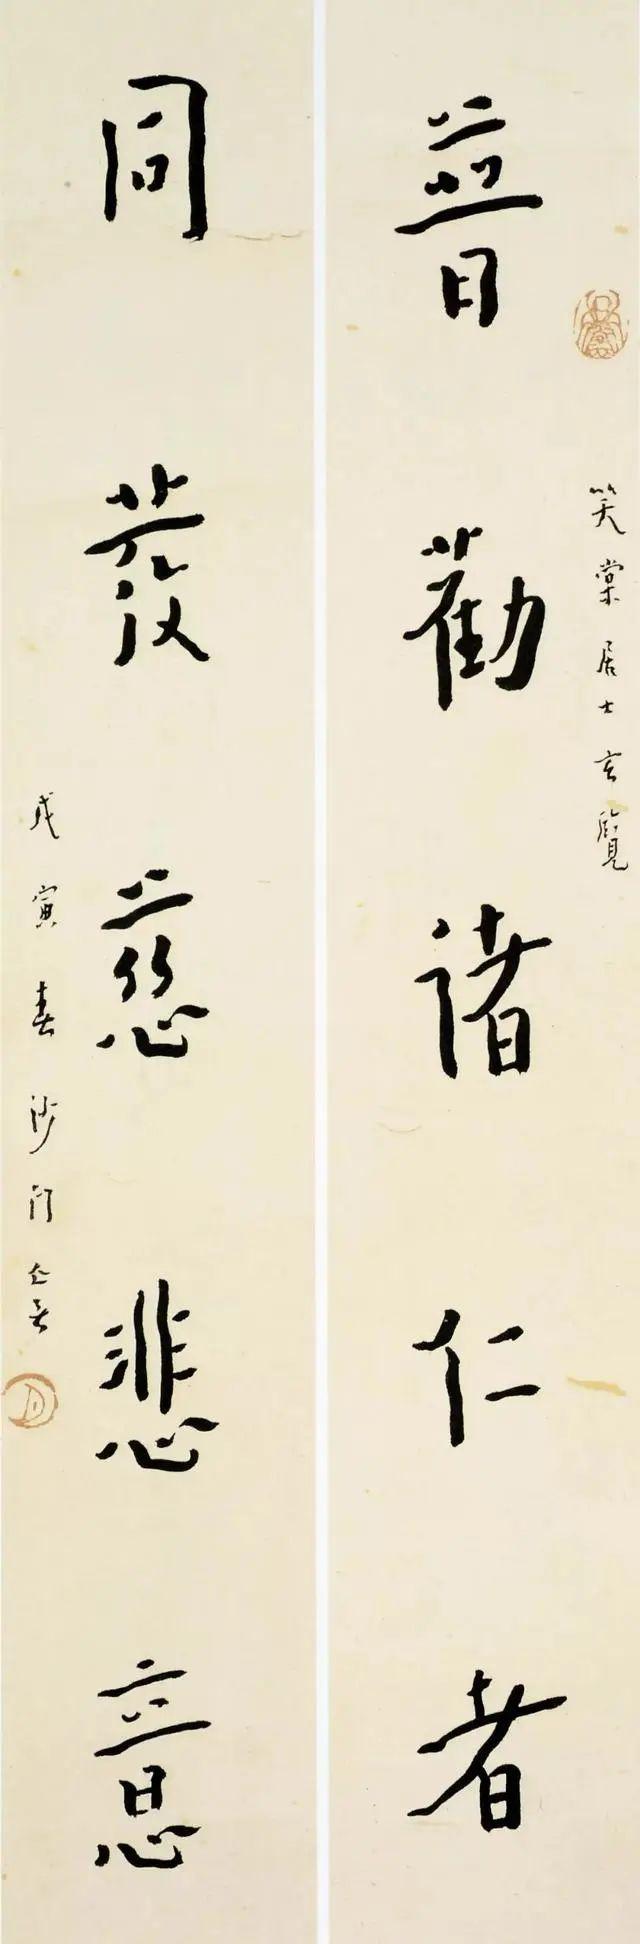 笑棠居士玄覽
普勸諸仁者
同發慈悲意
戊寅春沙門一音